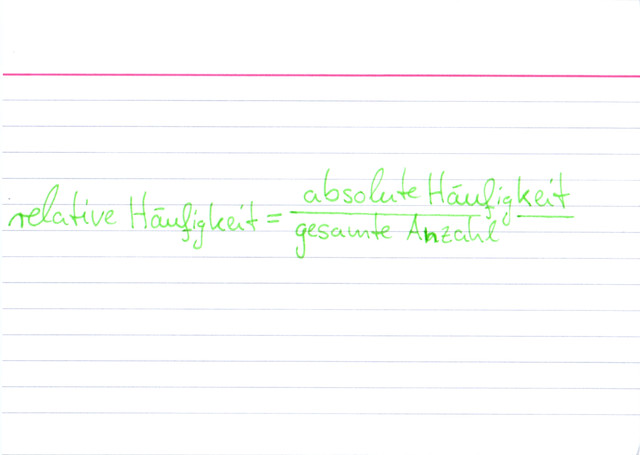 relative Häufigkeit = absolute Häufigkeit
gesamte Anzahl